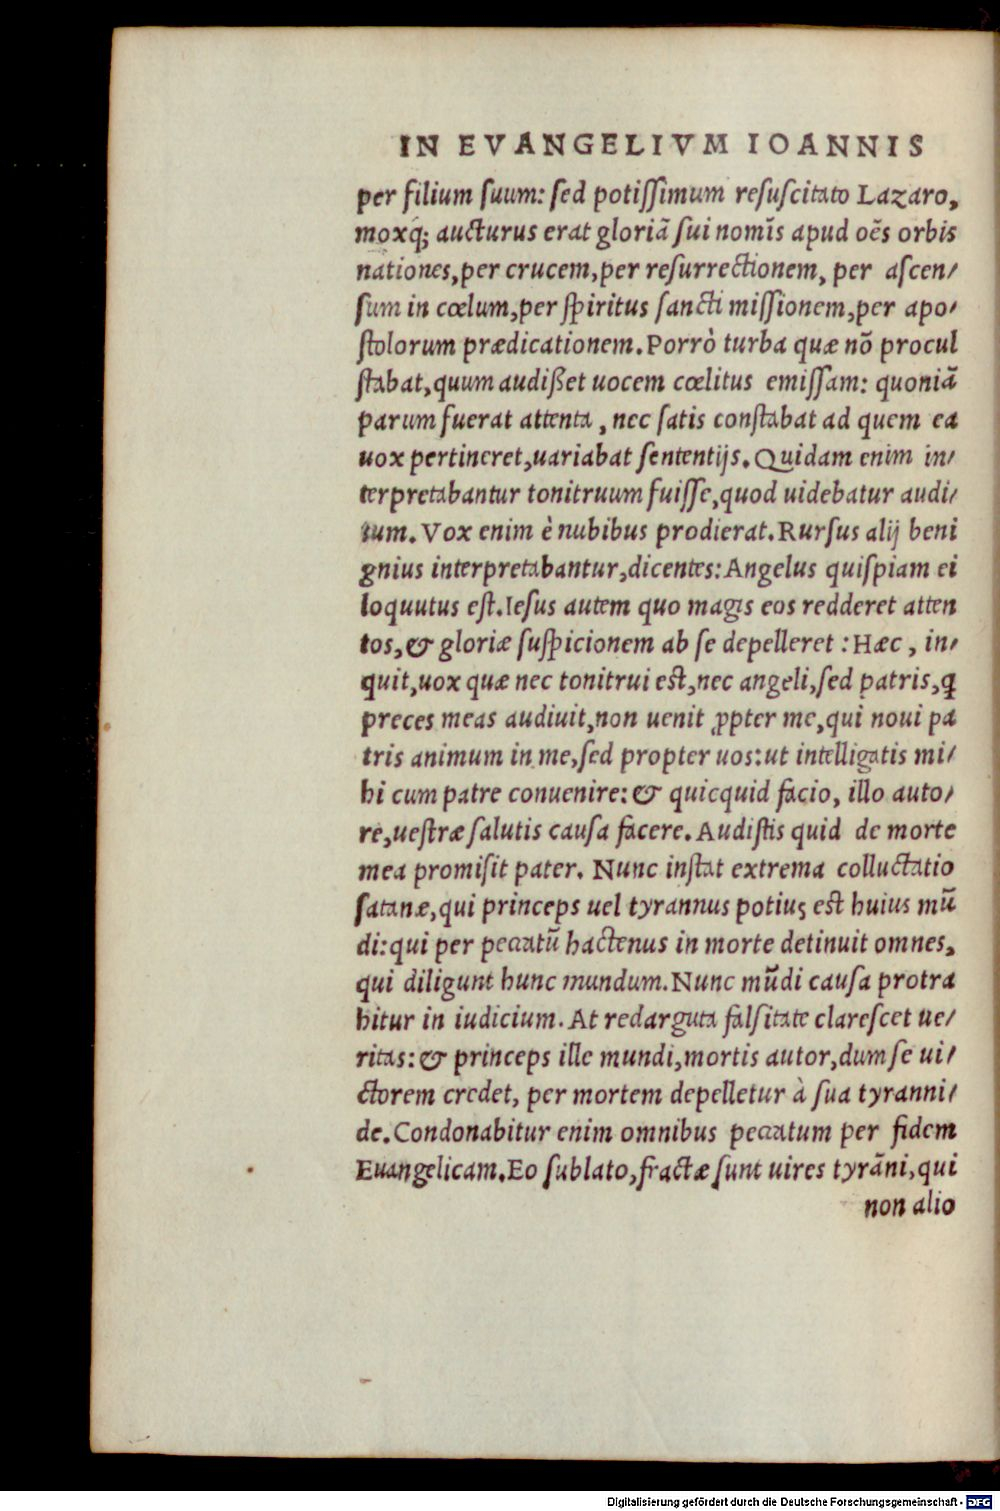 IN EVANGELIVM IOANNIS
per filium ſuum: ſed potiſſimum reſuſcitato Lazaro,
moxq́; aucturus erat gloriã ſui nomĩs apud oẽs orbis
nationes, per crucem, per reſurrectionem, per aſcen/
ſum in cœlum, per ſpiritus ſancti miſſionem, per apo/
ſtolorum prædicationem. Porrò turba quæ nõ procul
ſtabat, quum audißet uocem cœlitus emiſſam: quoniã
parum fuerat attenta, nec ſatis conſtabat ad quem ea
uox pertineret, uariabat ſententijs. Quidam enim in/
terpretabantur tonitruum fuiſſe, quod uidebatur audi/
tum. Vox enim è nubibus prodierat. Rurſus alij beni
gnius interpretabantur, dicentes: Angelus quiſpiam ei
loquutus eſt. Ieſus autem quo magis eos redderet atten
tos, & gloriæ ſuſpicionem ab ſe depelleret: Hæc, in/
quit, uox quæ nec tonitrui eſt, nec angeli, ſed patris, q
preces meas audiuit, non uenit ꝓpter me, qui noui pa
tris animum in me, ſed propter uos: ut intelligatis mi/
hi cum patre conuenire: & quicquid facio, illo auto/
re, ueſtræ ſalutis cauſa facere. Audiſtis quid de morte
mea promiſit pater. Nunc inſtat extrema colluctatio
ſatanæ, qui princeps uel tyrannus potiuꝫ eſt huius mũ
di: qui per peccatũ hactenus in morte detinuit omnes,
qui diligunt hunc mundum. Nunc mũdi cauſa protra
hitur in iudicium. At redarguta falſitate clareſcet ue/
ritas: & princeps ille mundi, mortis autor, dum ſe ui/
ctorem credet, per mortem depelletur à ſua tyranni/
de. Condonabitur enim omnibus peccatum per fidem
Euangelicam. Eo ſublato, fractæ ſunt uires tyrãni, qui
non alio
Digitalisierung gefördert durch die Deutsche Forschungsgemeinschaft - DFG